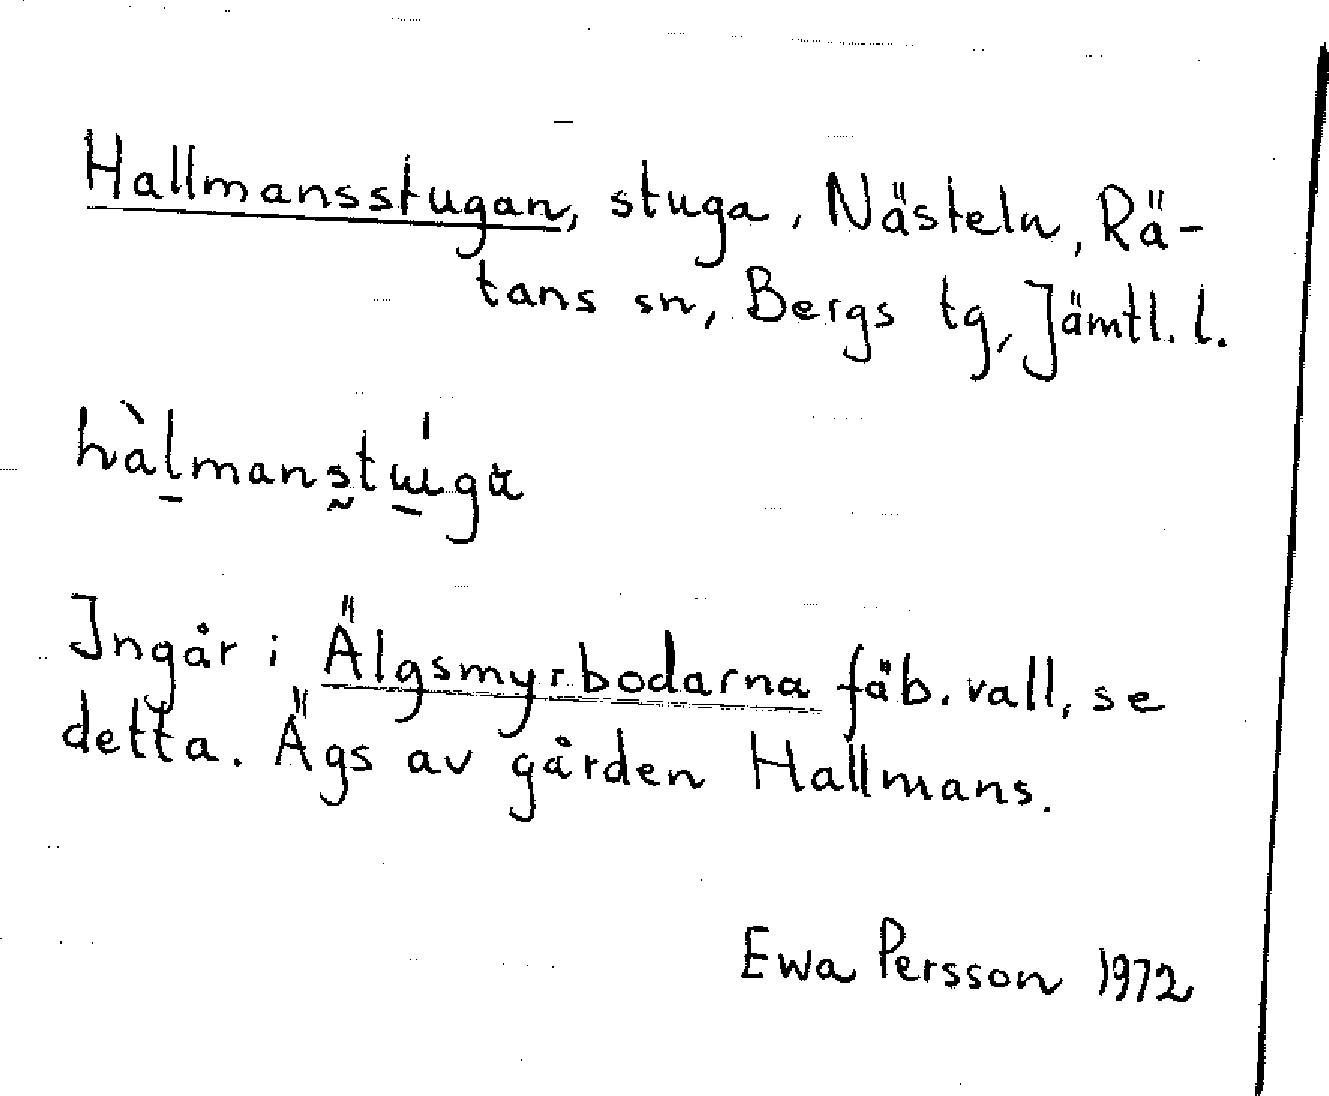 Hallmansstugan, stuga, Nästeln, Rä-
tans sn, Bergs tg, Jämtl. l.
hàl̠mans̰tɯ̠́gα
Ingår i Älgsmyrbodarna fäb. vall, se
detta. Ägs av gården Hallmans.
Ewa Persson 1972